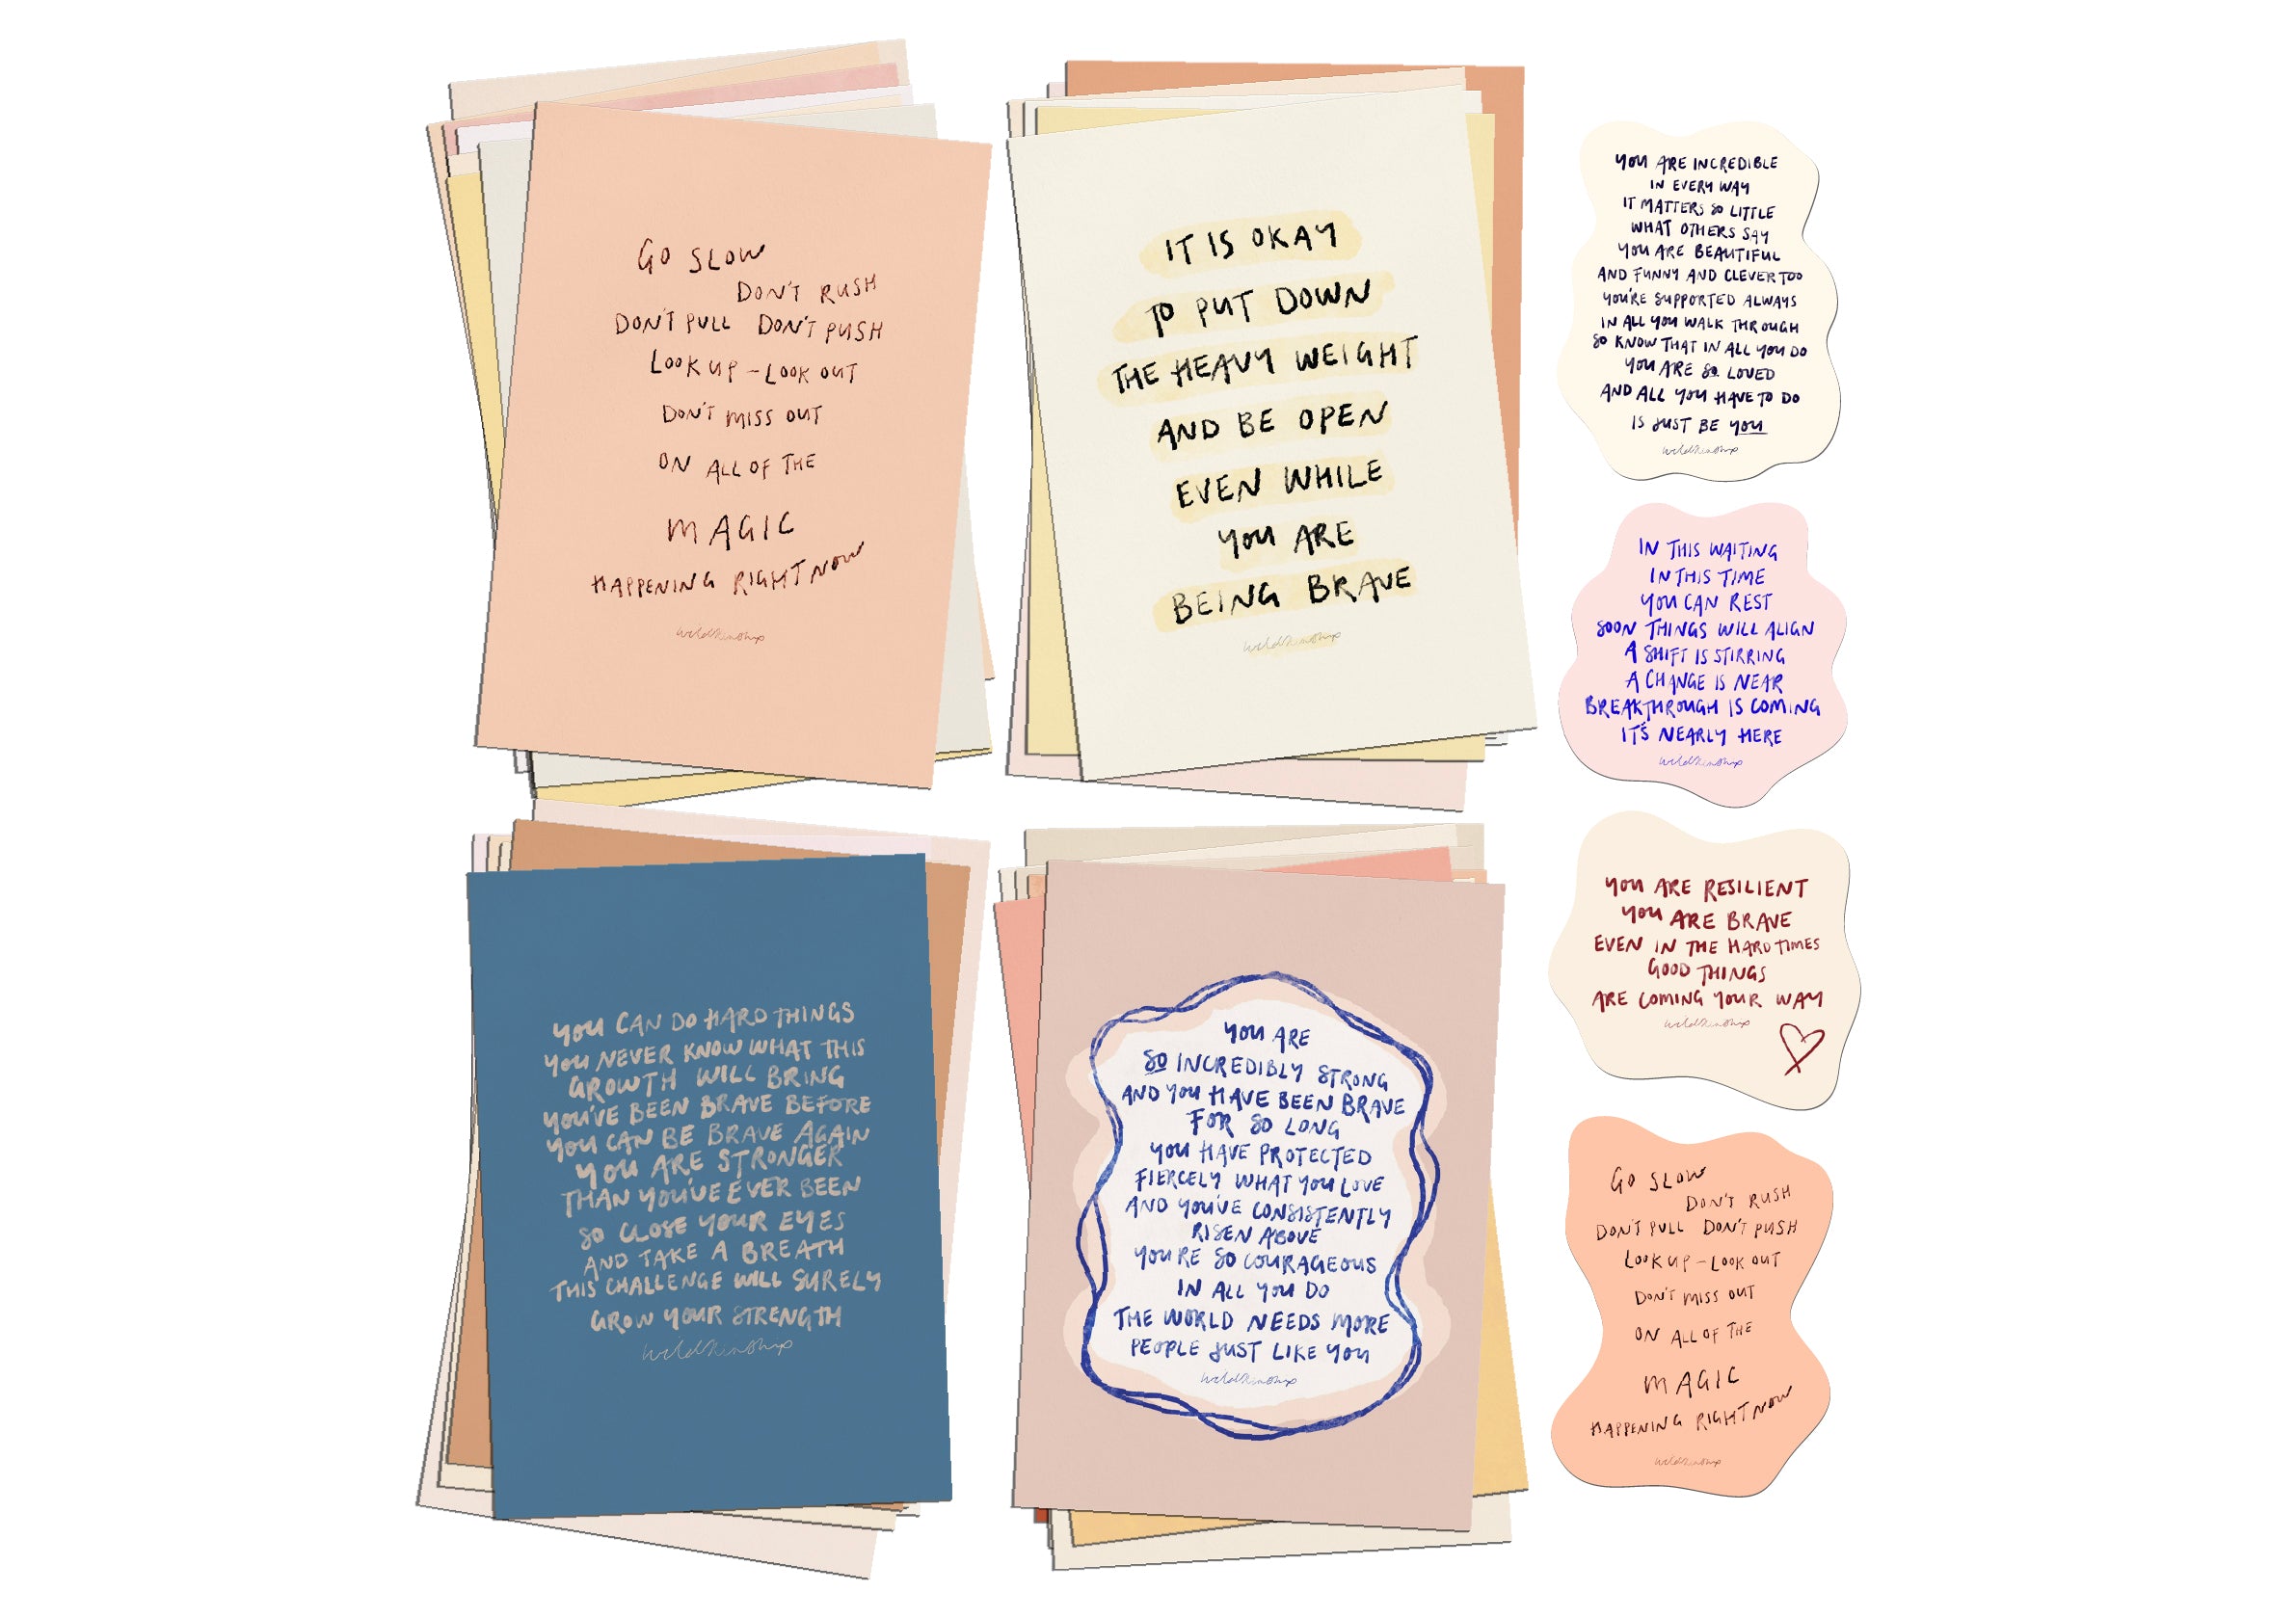 GO SLOW
DON'T RUSH
DON'T PULL DON'T PUSH
LOOK UP - LOOK OUT
DON'T MISS OUT
ON ALL OF THE
MAGIC
HAPPENING RIGHT NOW
wildkinship
IT IS OKAY
TO PUT DOWN
THE HEAVY WEIGHT
AND BE OPEN
EVEN WHILE
YOU ARE
BEING BRAVE
wildkinship
YOU CAN DO HARD THINGS
YOU NEVER KNOW WHAT THIS
GROWTH WILL BRING
YOU'VE BEEN BRAVE BEFORE
YOU CAN BE BRAVE AGAIN
YOU ARE STRONGER
THAN YOU'VE EVER BEEN
SO CLOSE YOUR EYES
AND TAKE A BREATH
THIS CHALLENGE WILL SURELY
GROW YOUR STRENGTH
wildkinship
YOU ARE
SO INCREDIBLY STRONG
AND YOU HAVE BEEN BRAVE
FOR SO LONG
YOU HAVE PROTECTED
FIERCELY WHAT YOU LOVE
AND YOU'VE CONSISTENTLY
RISEN ABOVE
YOU'RE SO COURAGEOUS
IN ALL YOU DO
THE WORLD NEEDS MORE
PEOPLE JUST LIKE YOU
wildkinship
YOU ARE INCREDIBLE
IN EVERY WAY
IT MATTERS SO LITTLE
WHAT OTHERS SAY
YOU ARE BEAUTIFUL
AND FUNNY AND CLEVER TOO
YOU'RE SUPPORTED ALWAYS
IN ALL YOU WALK THROUGH
SO KNOW THAT IN ALL YOU DO
YOU ARE SO LOVED
AND ALL YOU HAVE TO DO
IS JUST BE YOU
wildkinship
IN THIS WAITING
IN THIS TIME
YOU CAN REST
SOON THINGS WILL ALIGN
A SHIFT IS STIRRING
A CHANGE IS NEAR
BREAKTHROUGH IS COMING
IT'S NEARLY HERE
wildkinship
YOU ARE RESILIENT
YOU ARE BRAVE
EVEN IN THE HARD TIMES
GOOD THINGS
ARE COMING YOUR WAY
wildkinship
GO SLOW
DON'T RUSH
DON'T PULL DON'T PUSH
LOOK UP - LOOK OUT
DON'T MISS OUT
ON ALL OF THE
MAGIC
HAPPENING RIGHT NOW
wildkinship